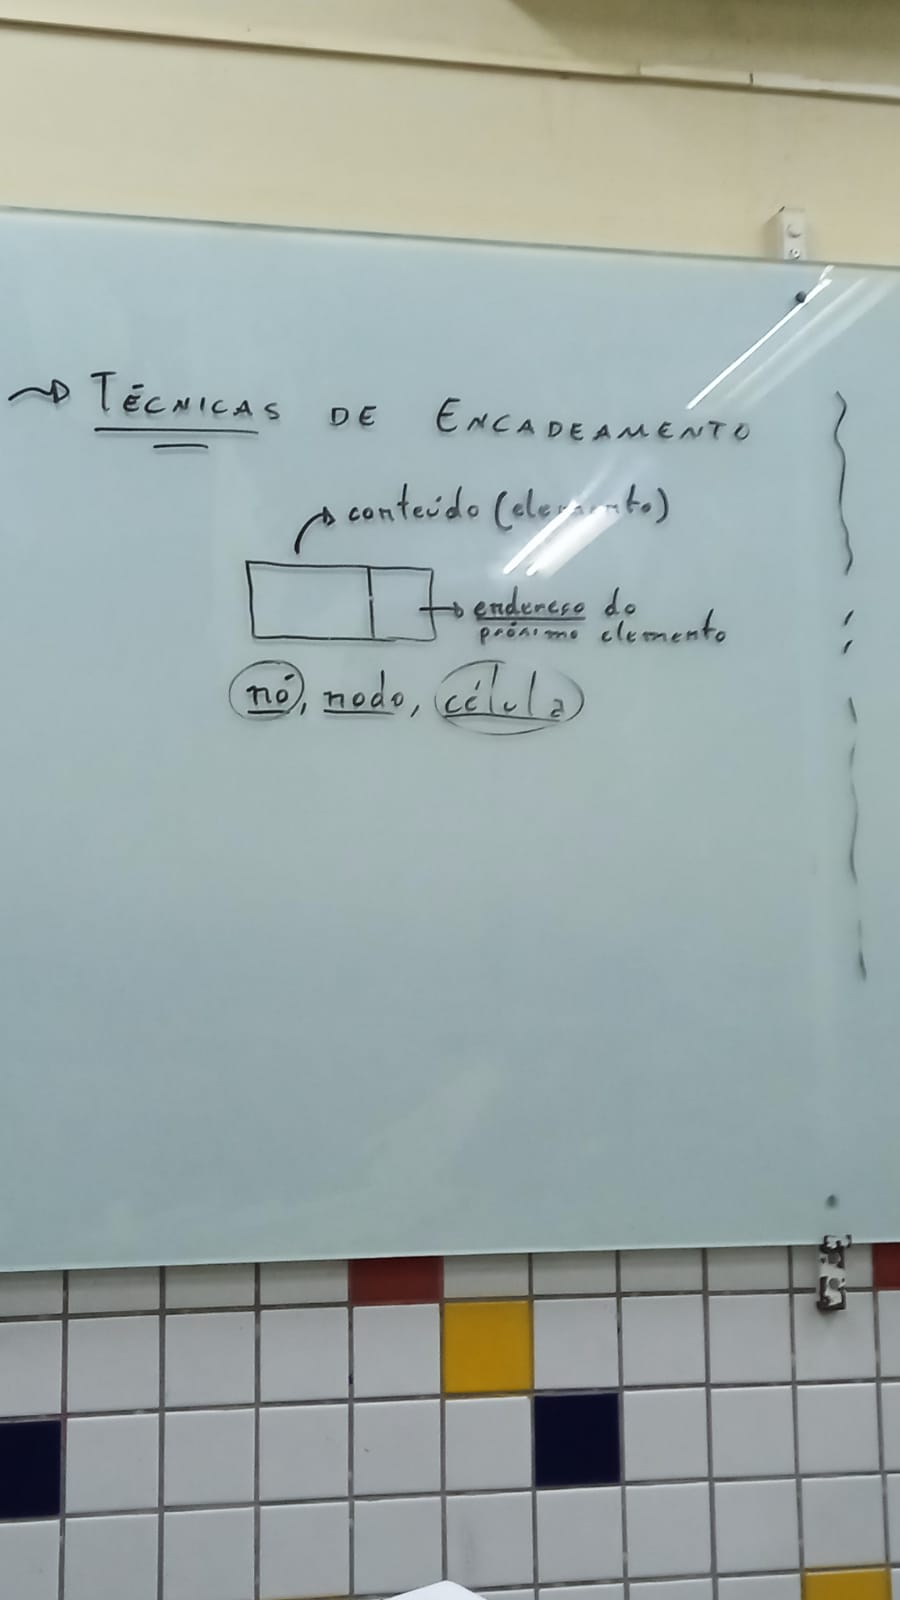 TÉCNICAS DE ENCADEAMENTO
conteúdo (elemento)
endereço do
próximo elemento
nó, nodo, célula